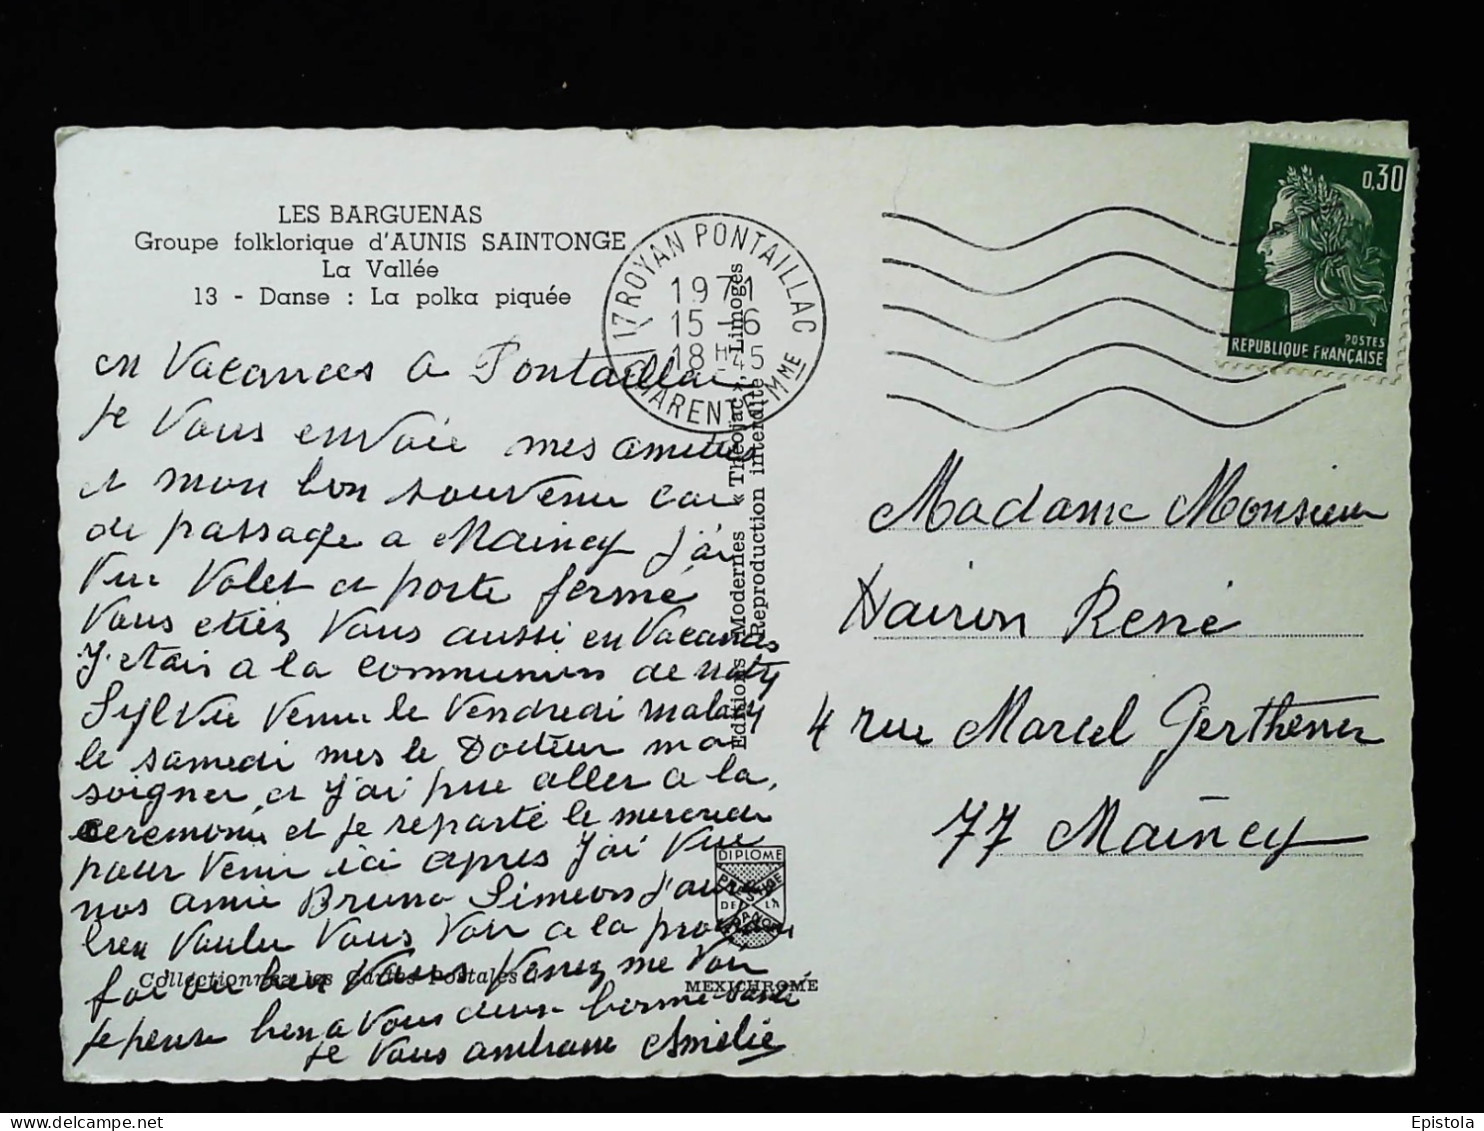 LES BARGUENAS
Groupe folklorique d'AUNIS SAINTONGE
La Vallée
13 - Danse : La polka piquée
en Vacances a Pontaillac
Je Vous envoie mes amities
et mon bon souvenir car
de passage a Maincy j'ai
Vue Volet et porte fermé
Vous etiez Vous aussi en Vacances
J'etais a la communion de
Sylvie Venue le Vendredi malade
le samedi mes le Docteur ma
soigner, et j'ai pue aller a la
ceremonie et je reparté le mercredi
pour Venir ici apres j'ai Vue
nos amie Bruno Simeon j'aurez
bien Voulu Vous Voir a la prochaine
foi ou bien Vous Venez me Voir
je pense bien a Vous deux bonne santé
je Vous embrasse Amélie
Collectionnez les Cartes Postales
MEXICHROME
DIPLOME
PRESTIGE
DE LA
FRANCE
Editions Modernes « Théojac », Limoges
Reproduction interdite
17 ROYAN PONTAILLAC
1971
15 - 6
18 H 45
CHARENTE-MME
0,30
POSTES
REPUBLIQUE FRANÇAISE
Madame Monsieur
Hairon René
4 rue Marcel
77 Maincy
Epistola